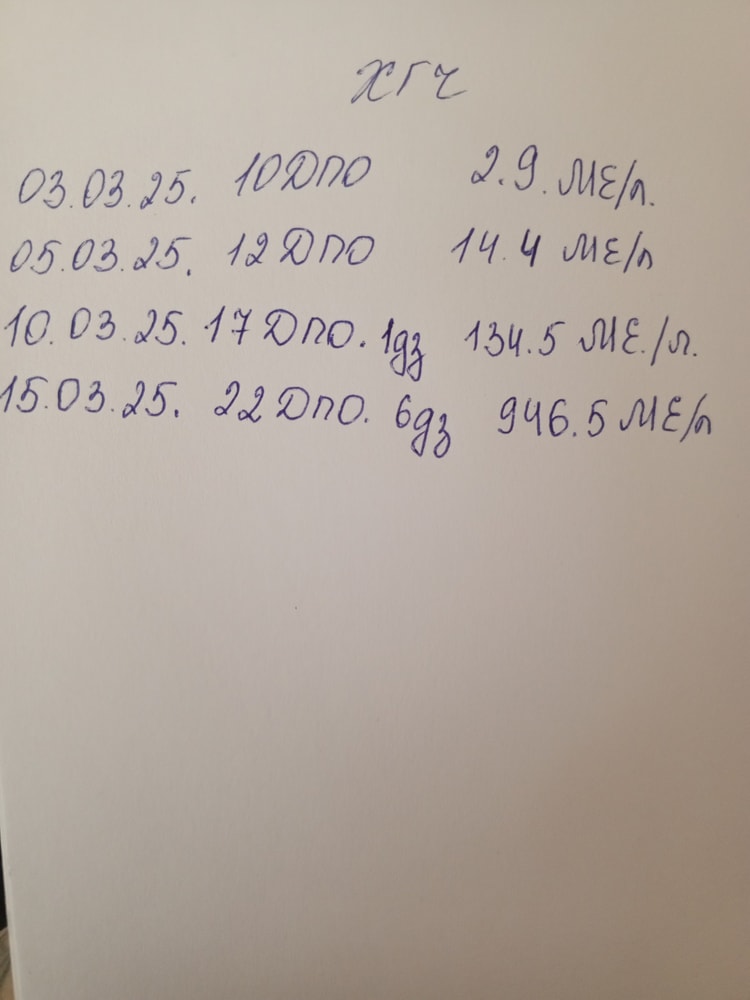 ХГЧ
03.03.25. 10ДПО 2.9. МЕ/л.
05.03.25. 12ДПО 14.4 МЕ/л
10.03.25. 17ДПО. 1дз 134.5 МЕ./л.
15.03.25. 22ДПО. 6дз 946.5 МЕ/л